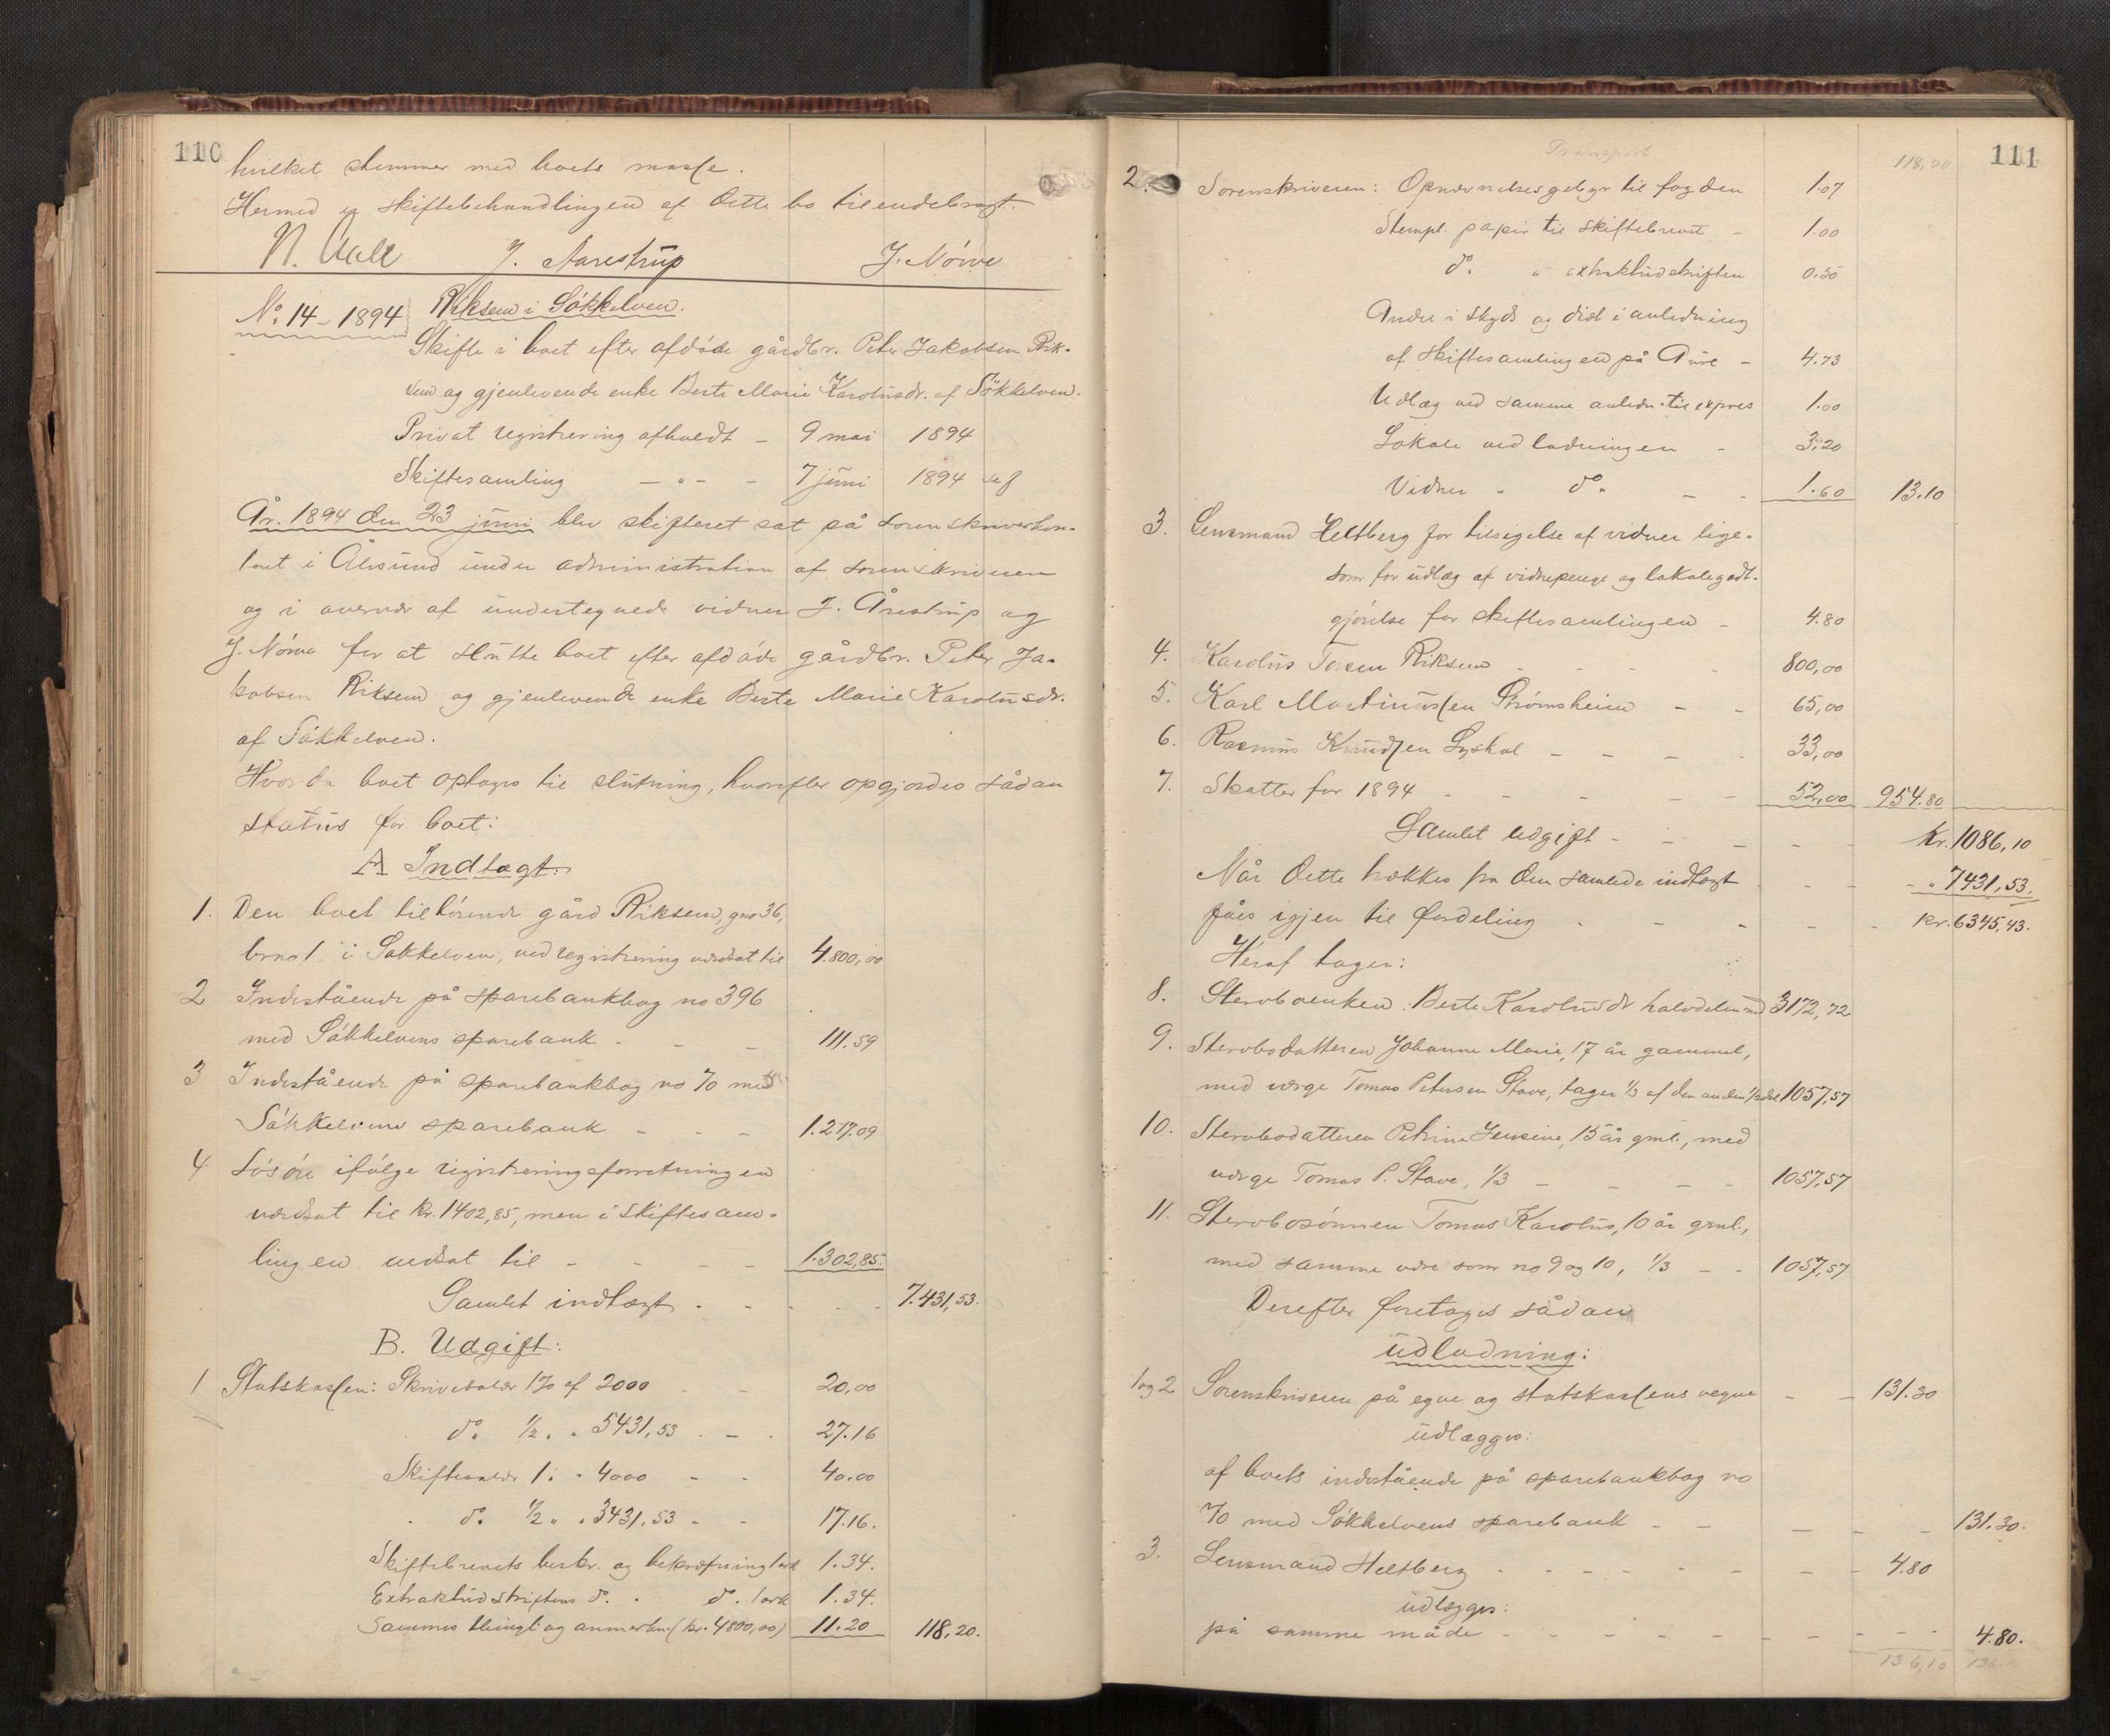 110
hvilket stemmer med boets masse.
Hermed er skiftebehandlingen af dette bo tilendebragt.
N. Aall J. Aarestrup J. Nörve
No. 14 - 1894 Riksem i Sökkelven.
Skifte i boet efter afdöde gårdbr. Peter Jakobsen Rik-
sem og gjenlevende enke Berte Marie Karolusdr. af Sökkelven.
Privat registrering afholdt - 9 mai 1894
Skiftesamling - " - - 7 juni 1894
År 1894 den 23 juni blev skifteret sat på sorenskriverkon-
toret i Ålesund under administration af sorenskriveren
og i overvær af undertegnede vidner J. Årestrup og
J. Nörve for at slutte boet efter afdöde gårdbr. Peter Ja-
kobsen Riksem og gjenlevende enke Berte Marie Karolusdr.
af Sökkelven.
Hvorda boet optoges til slutning, hvorefter opgjordes sådan
status for boet:
A Indtægt:
1. Den boet tilhörende gård Riksem, gno 36,
brno 1. i Søkkelven, ved registrering værdsat til 4.800,00
2 Indestående på sparebankbog no 396
med Sökkelvens sparebank - - - 111.59
3 Indestående på sparebankbog no 70 med
Sökkelvens sparebank - - - 1.217.09
4 Lösöre ifölge registreringsforretningen
værdsat til kr. 1402,85, men i skiftesam-
lingen nedsat til - - - - 1.302,85.
Samlet indtægt - - - - - 7.431,53.
B. Udgift:
1 Statskassen: Skrivesalær 1% af 2000 - - 20,00
do. 1/2 " " 5431,53 - - - 27.16
Skiftesalær 1 " " 4000 - - 40.00
- do. 1/2 " " 3431,53 - - 17.16.
Skiftebrevets beskr. og bekræftning 1 ark 1.34.
Extraktudskriftens do. " do. 1 ark 1.34.
Sammes thingl. og anmerkn. (kr. 4800,00) 11.20 118,20.
111
Transport 118,20
2. Sorenskriveren: Opnævnelsesgebyr til fogden 1.07
Stempl. papir til skiftebrevet - 1.00
do. " extraktudskriften 0.50
Andel i skyds og diæt i anledning
af skiftesamlingen på Aure - 4.73
Udlæg ved samme anledn. til expres 1.00
Lokale ved ladningen - 3.20
Vidner " do. - - 1.60 13.10
3. Lensmand Heltberg for tilsigelse af vidner lige-
som for udlæg af vidnepenge og lokalegodt-
gjörelse for skiftesamlingen - 4.80
4. Karolus Riksem - - - 800,00
5. Karl Martinussen Strømsheim - - 65,00
6. Rasmus Knudsen - - - - 33,00
7. Skatter for 1894 - - - - - 52,00 954.80
Samlet udgift - - - - - kr. 1086,10
Når dette trækkes fra den samlede indtægt - - - - " 7431,53.
fåes igjen til fordeling - - - - - kr. 6345,43.
Heraf tager:
8. Sterboenken Berte Karolusdr halvdelen med 3172,72
9. Sterbodatteren Johanne Marie, 17 år gammel,
med værge Tomas Petersen Stave, tager 1/3 af den anden 1/2del 1057,57
10. Sterbodatteren Petrine Jensine, 15 år gml., med
værge Tomas P. Stave, 1/3 - - - - 1057,57
11. Sterbosönnen Tomas Karolus, 10 år gml.,
med samme som no 9 og 10, 1/3 - - 1057,57
Derefter foretoges sådan
udlodning:
1 og 2 Sorenskriveren på egne og statskassens vegne - - 131.30
udlægges:
af boets indestående på sparebankbog no
70 med Sökkelvens sparebank - - - - - 131.30.
3. Lensmand Heltberg - - - - - - - - 4.80
udlægges:
på samme måde - - - - - - - - - - 4.80.
136,10 136.10